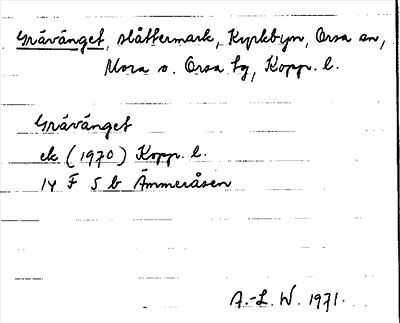 Gråvånget, slåttermark, Kyrkbyn, Orsa sn,
Mora o. Orsa tg, Kopp. l.
Gråvånget
ek (1970) Kopp. l.
14 F 5 b Ämmeråsen
A.-L. W. 1971.